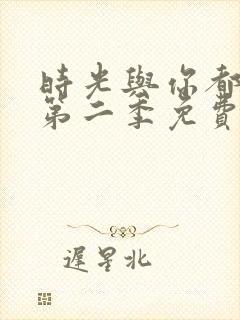 時光與你都
第二季免費
遲星北